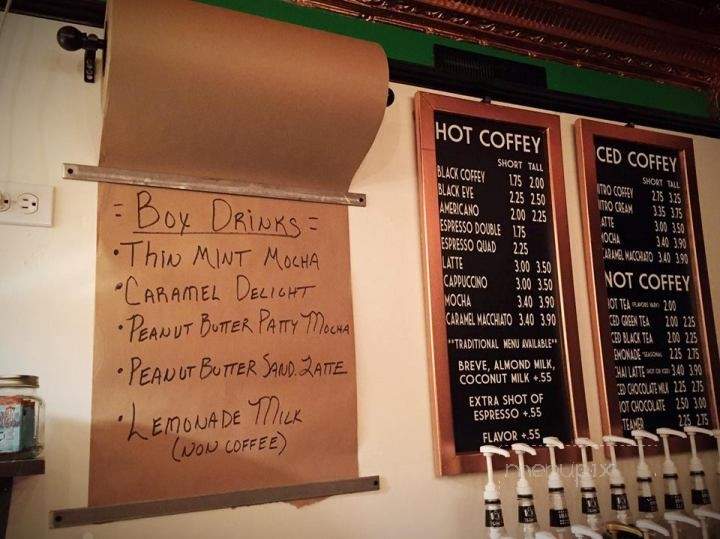 = Box Drinks =
• Thin Mint Mocha
• Caramel Delight
• Peanut Butter Patty Mocha
• Peanut Butter Sand. Latte
• Lemonade Milk
(Non Coffee)
HOT COFFEY
SHORT TALL
BLACK COFFEY 1.75 2.00
BLACK EYE 2.25 2.50
AMERICANO 2.00 2.25
ESPRESSO DOUBLE 1.75
ESPRESSO QUAD 2.25
LATTE 3.00 3.50
CAPPUCCINO 3.00 3.50
MOCHA 3.40 3.90
CARAMEL MACCHIATO 3.40 3.90
**TRADITIONAL MENU AVAILABLE**
BREVE, ALMOND MILK,
COCONUT MILK +.55
EXTRA SHOT OF
ESPRESSO +.55
FLAVOR +.55
CED COFFEY
SHORT TALL
ITRO COFFEY 2.75 3.25
ITRO CREAM 3.35 3.75
ATTE 3.00 3.50
OCHA 3.40 3.90
CARAMEL MACCHIATO 3.40 3.90
NOT COFFEY
HOT TEA (FLAVORS VARY) 2.00
CED GREEN TEA 2.00 2.25
CED BLACK TEA 2.00 2.25
EMONADE *SEASONAL 2.25 2.75
CHAI LATTE HOT OR ICED 3.40 3.90
CED CHOCOLATE MILK 2.25 2.75
HOT CHOCOLATE 2.50 3.00
TEAMER 2.25 2.75
menupix